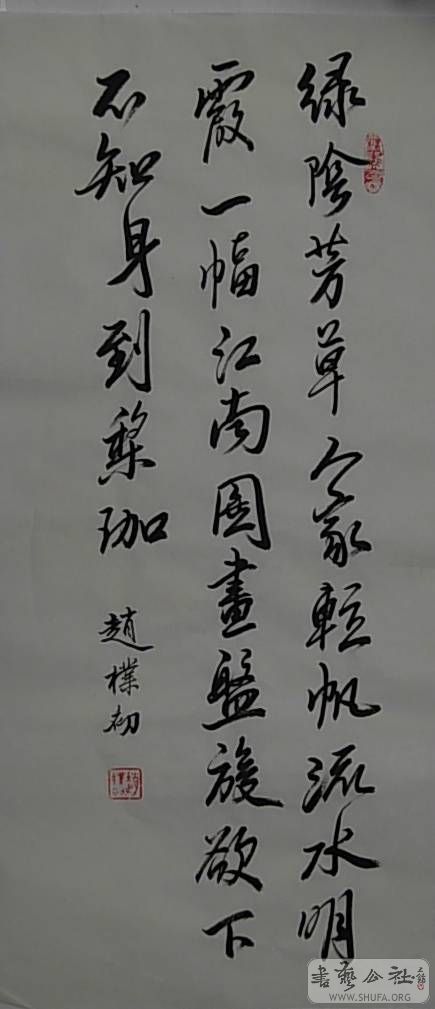 绿陰芳草人家轻帆流水明
霞一幅江南图畫盤旋欲下
不知身到梨珈
趙樸初
書藝公社
WWW.SHUFA.ORG